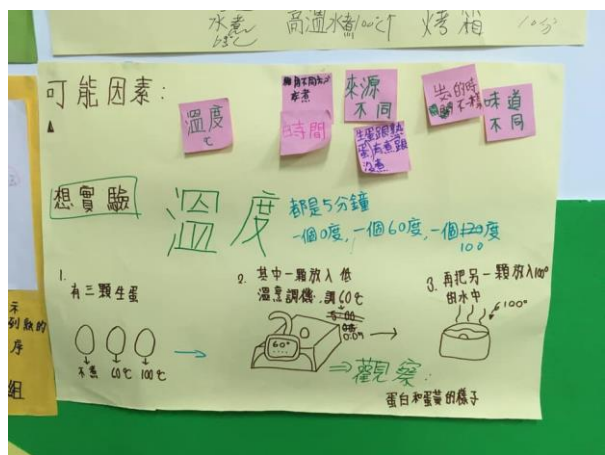 水煮 高溫水煮100℃↑ 烤箱 10分
65℃
可能因素:
溫度
℃
水煮
時間
來源
不同
生蛋跟熟
蛋有煮跟
沒煮
味道
不同
想實驗
溫度
都是5分鐘
一個0度,一個60度,一個度
100
1.
有三顆生蛋
不煮 60℃ 100℃
2. 其中一顆放入低
溫烹調機,調60℃
60°
3. 再把另一顆放入100°
的水中
100°
⇒觀察:
蛋白和蛋黃的樣子
示
列款的
序
組